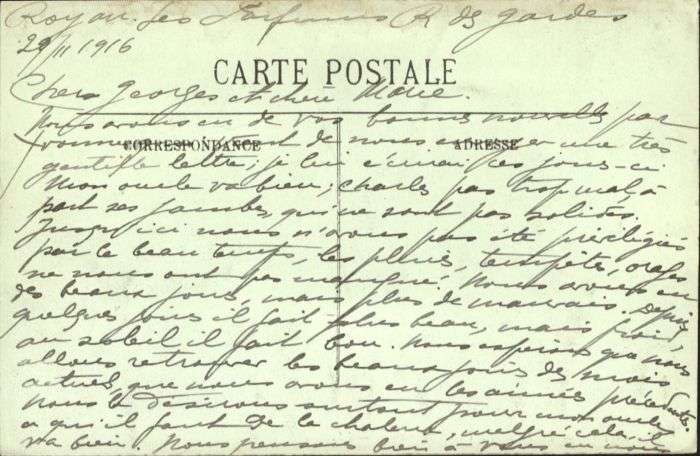 Royan. Les Parfums R des Gardes
29/11 1916
CARTE POSTALE
Chers Georges et chère Marie.
Nous avons eu de vos bonnes nouvelles par
vient de nous envoyer une très
CORRESPONDANCE
ADRESSE
gentille lettre; je lui écrirai ces jours-ci
Mon oncle va bien; Charles pas trop mal, à
part ses jambes, qui ne sont pas solides.
Jusqu'ici nous n'avons pas été privilégiés
par le beau temps, les pluies, tempêtes, orages
ne nous ont pas manqué. Nous avons eu
des beaux jours, mais plus de mauvais. Depuis
quelques jours il fait plus beau, mais froid,
au soleil il fait bon. Nous espérons que nous
allons retrouver les beaux jours des mois
actuels, que nous avons eu les années précédentes.
Nous le désirons surtout pour mon oncle
à qu'il faut de la chaleur, malgré cela, il
va bien. Nous pensons bien à vous